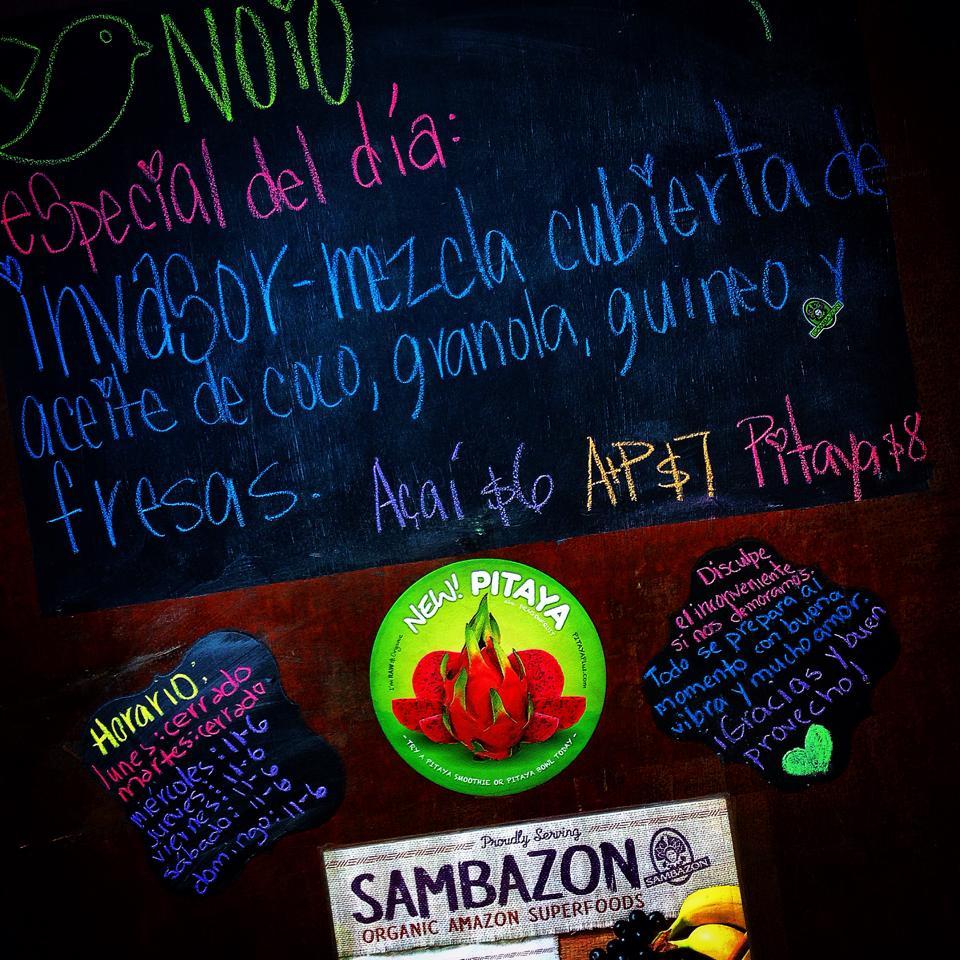 NOIO
especial del día:
invasor-mezcla cubierta de
aceite de coco, granola, guineo y
fresas. Açaí $6 A+P $7 Pitaya $8
NEW! PITAYA
I'm RAW & Organic
PITAYAPlus.com
- TRY A PITAYA SMOOTHIE OR PITAYA BOWL TODAY -
Disculpe
el inconveniente
si nos demoramos.
Todo se prepara al
momento con buena
vibra y mucho amor.
¡Gracias y buen
provecho!
Horario:
lunes: cerrado
martes: cerrado
miércoles: 11-6
jueves: 11-6
viernes: 11-6
sábado: 11-6
domingo: 11-6
Proudly Serving
SAMBAZON
SAMBAZON
ORGANIC AMAZON SUPERFOODS